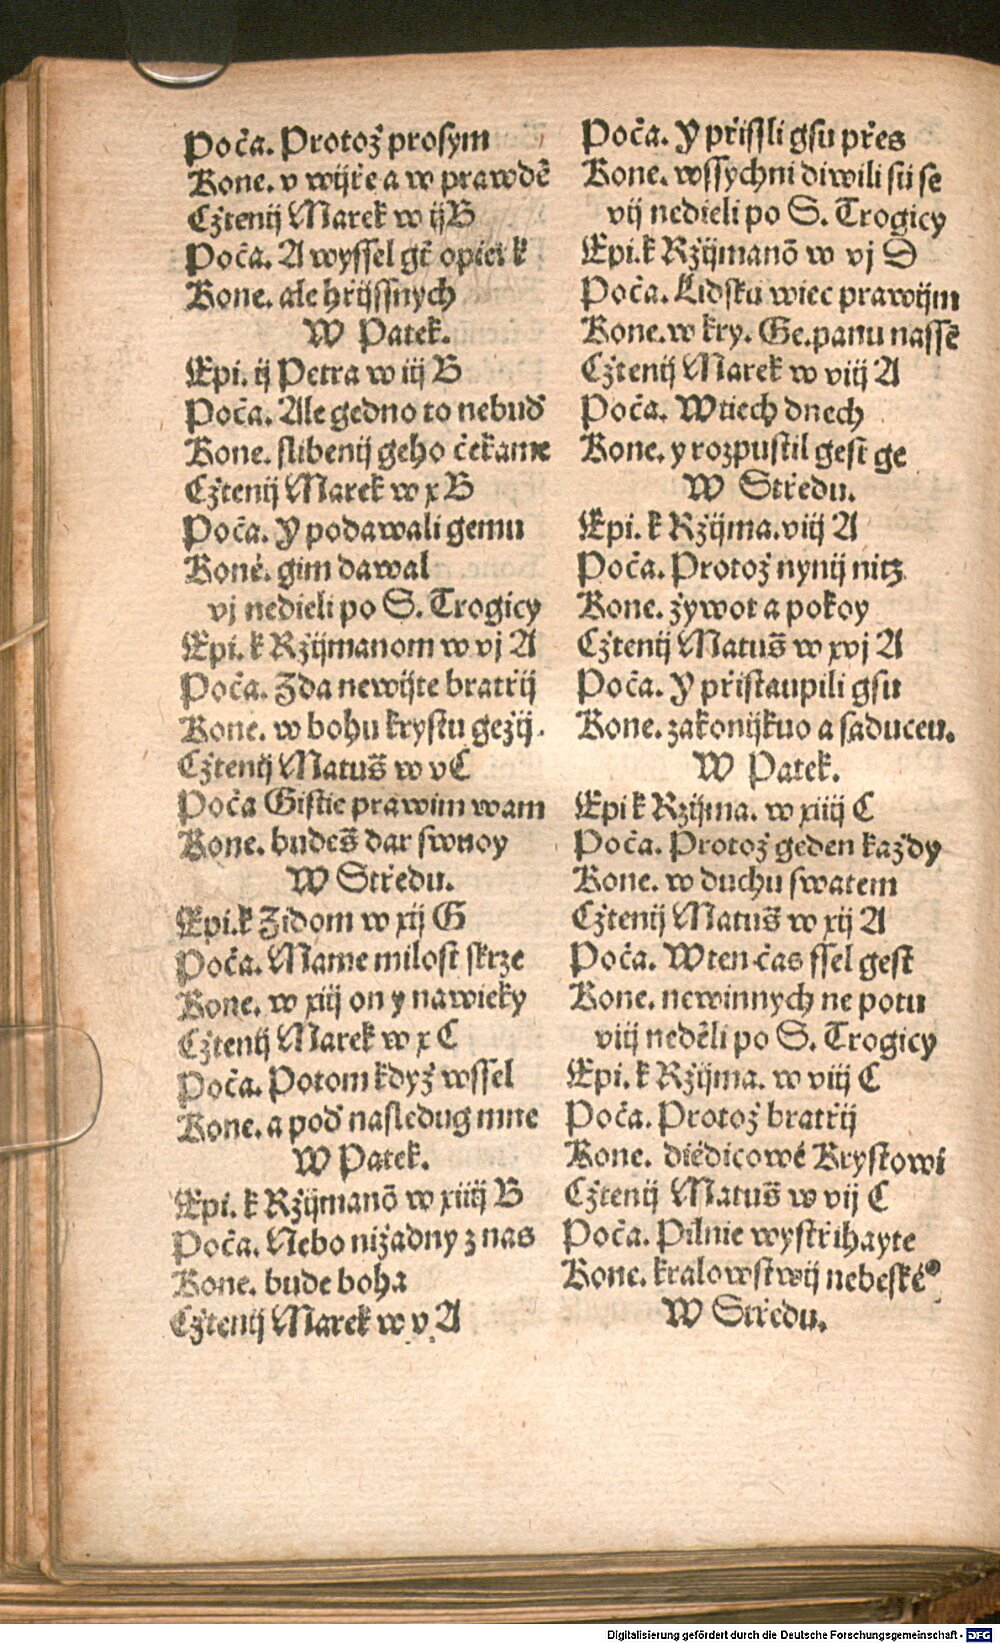 Poča. Protož prosym
Kone. v wijře a w prawdē
Cžtenij Marek w ij B
Poča. A wyssel gt̄ opiet k
Kone. ale hřijssnych
W Patek.
Epi. ij Petra w iij B
Poča. Ale gedno to nebuď
Kone. slibenij geho čekame
Cžtenij Marek w x B
Poča. Y podawali gemu
Kone. gim dawal
vj nedieli po S. Trogicy
Epi. k Ržijmanom w vj A
Poča. Zda newijte bratřij
Kone. w bohu krystu gežij.
Cžtenij Matuš w v C
Poča Gistie prawim wam
Kone. budeš dar swuoy
W Středu.
Epi. k Židom w xij G
Poča. Mame milost skrze
Kone. w xiij on y nawieky
Cžtenij Marek w x C
Poča. Potom když wssel
Kone. a poď nasledug mne
W Patek.
Epi. k Ržijmanō w xiiij B
Poča. Nebo nižadny z nas
Kone. bude boha
Cžtenij Marek w v A
Poča. Y přissli gsu přes
Kone. wssychni diwili sú se
vij nedieli po S. Trogicy
Epi. k Ržijmanō w vj D
Poča. Lidsku wiec prawijm
Kone. w kry. Ge. panu nassē
Cžtenij Marek w viij A
Poča. Wtiech dnech
Kone. y rozpustil gest ge
W Středu.
Epi. k Ržijma. viij A
Poča. Protož nynij nitz
Kone. žywot a pokoy
Cžtenij Matuš w xvj A
Poča. Y přistaupili gsu
Kone. zakonijkuo a saduceu.
W Patek.
Epi k Ržijma. w xiiij C
Poča. Protož geden každy
Kone. w duchu swatem
Cžtenij Matuš w xij A
Poča. Wten čas ssel gest
Kone. newinnych ne potu
viij neděli po S. Trogicy
Epi. k Ržijma. w viij C
Poča. Protož bratřij
Kone. diedicowé Krystowi
Cžtenij Matuš w vij C
Poča. Pilnie wystřihayte
Kone. kralowstwij nebeskéꝰ
W Středu.
Digitalisierung gefördert durch die Deutsche Forschungsgemeinschaft - DFG